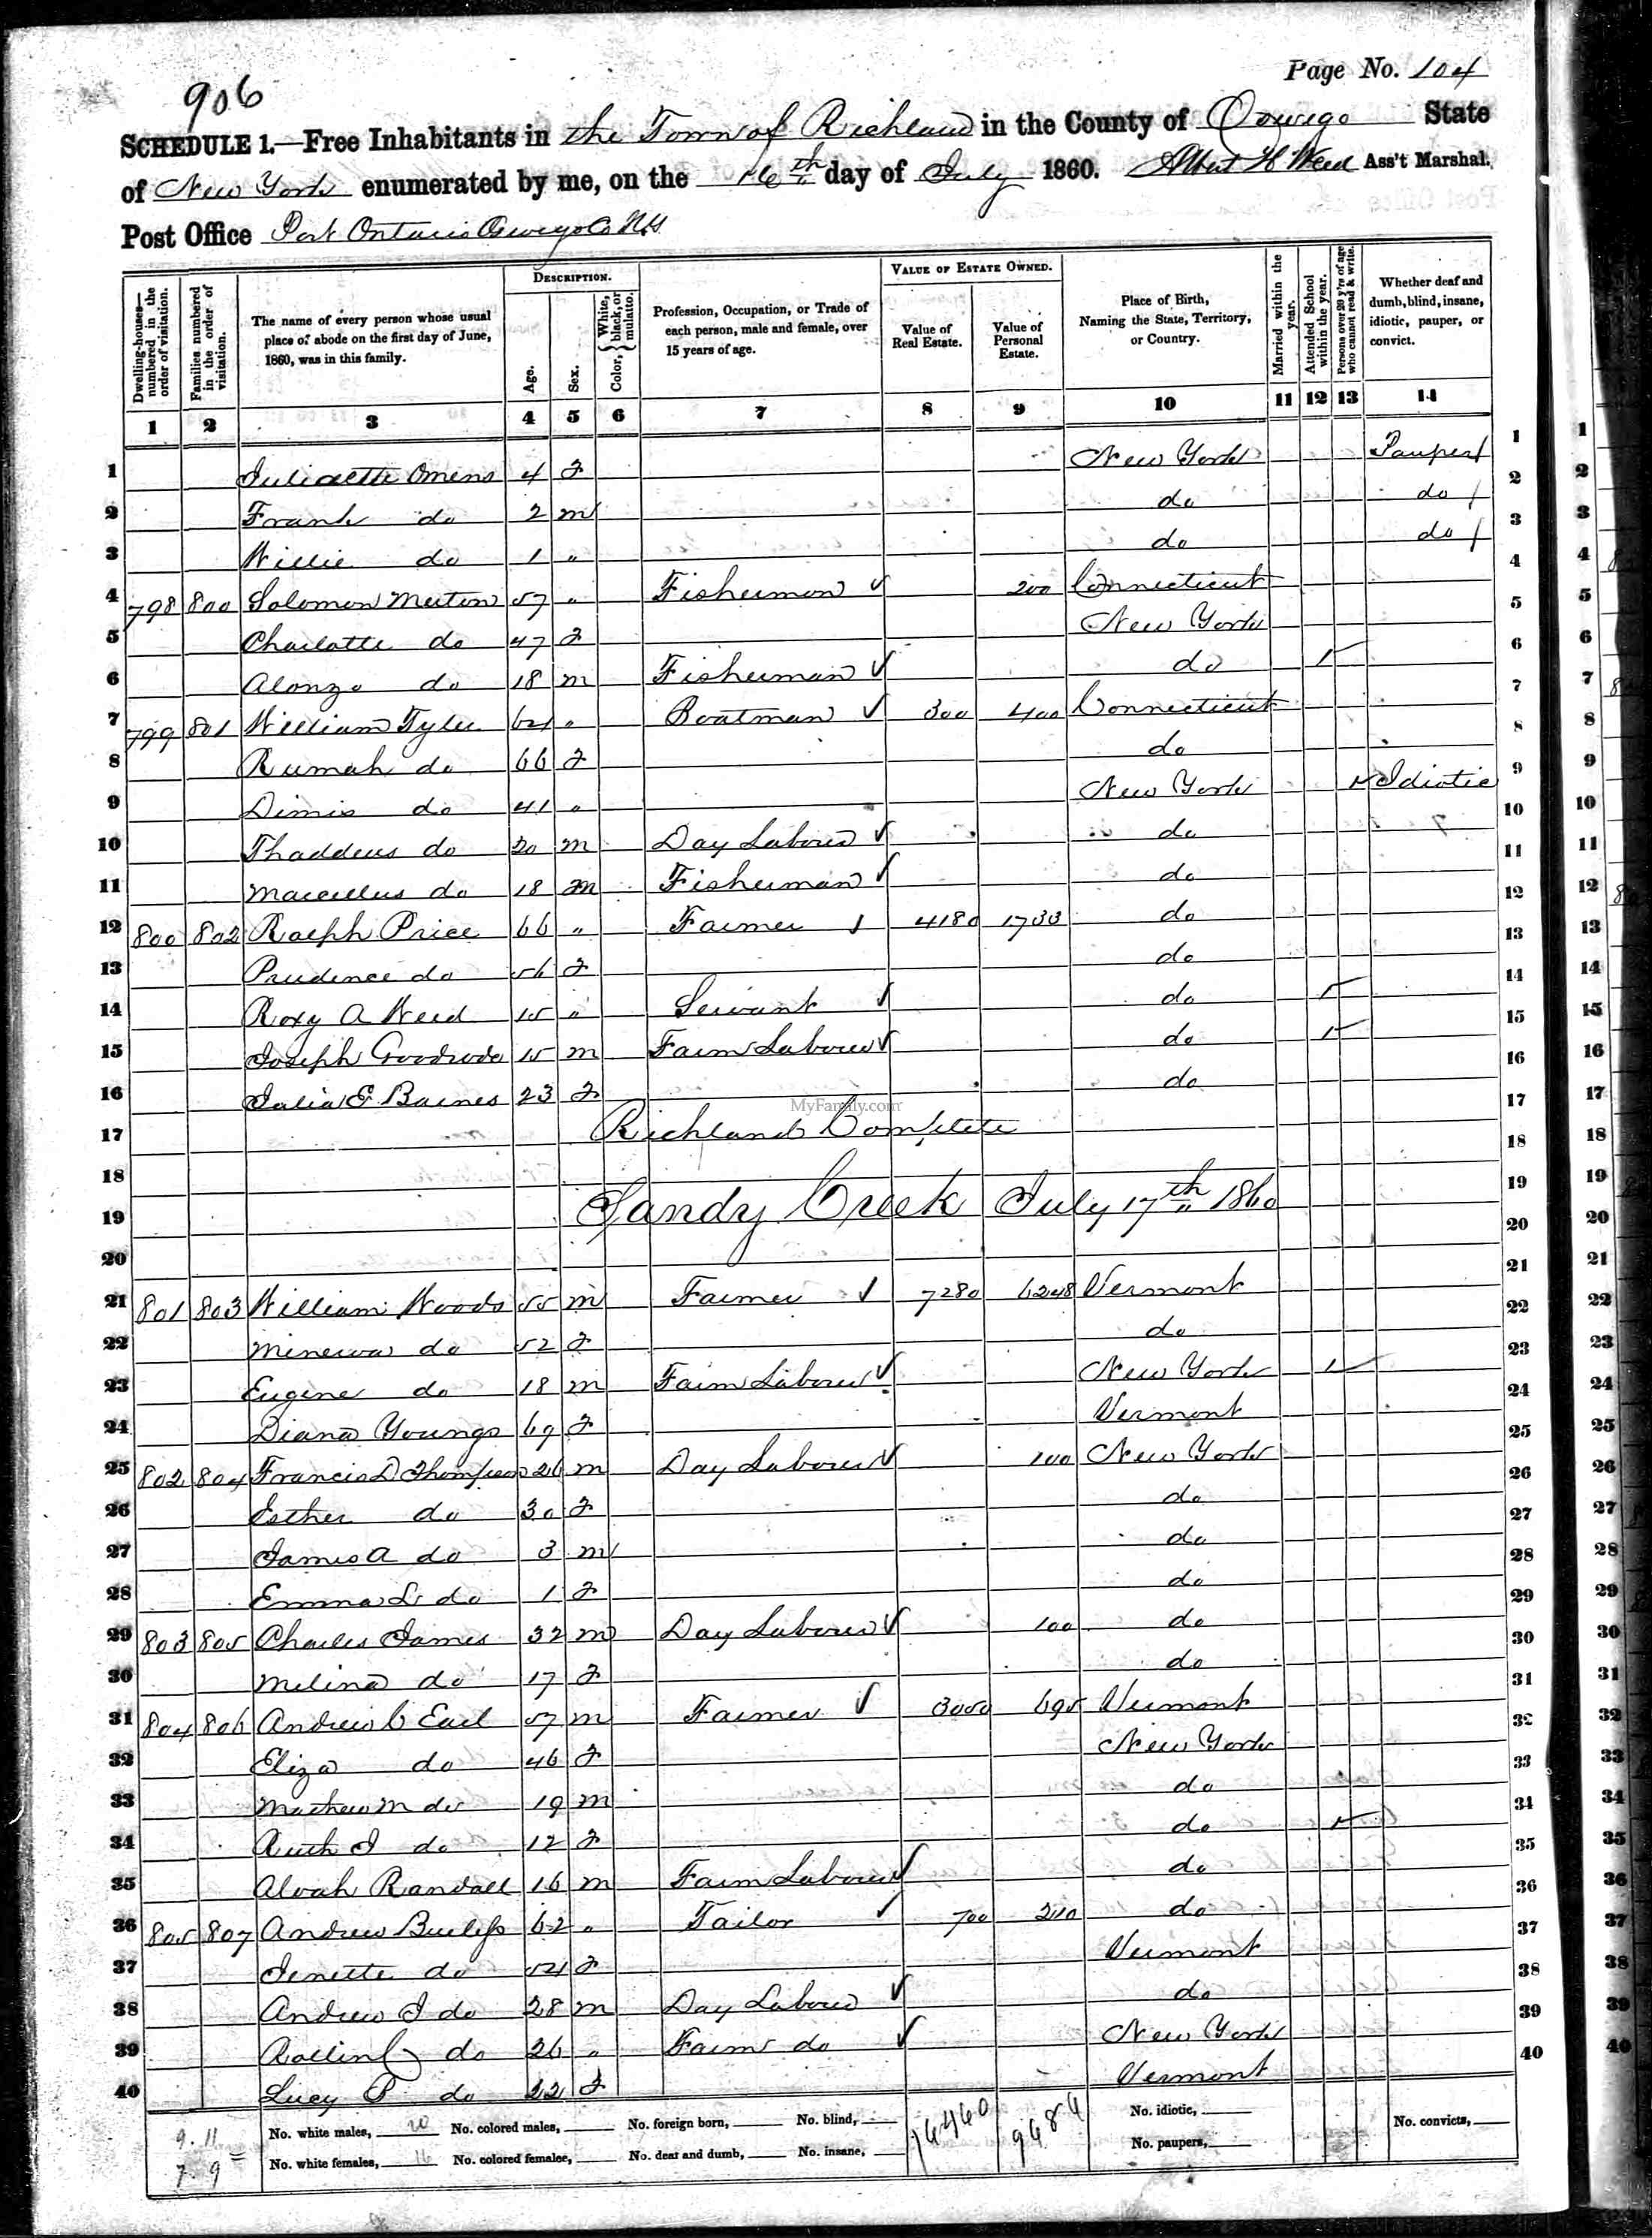 906
Page No. 104
SCHEDULE 1.—Free Inhabitants in the Town of Richland in the County of Oswego State
of New York enumerated by me, on the 16th day of July 1860. Albert H Weed Ass't Marshal.
Post Office Port Ontario Oswego Co NY
Dwelling-houses—numbered in the order of visitation.
Families numbered in the order of visitation.
The name of every person whose usual place of abode on the first day of June, 1860, was in this family.
DESCRIPTION.
Age.
Sex.
Color, { White, black, or mulatto.
Profession, Occupation, or Trade of each person, male and female, over 15 years of age.
VALUE OF ESTATE OWNED.
Value of Real Estate.
Value of Personal Estate.
Place of Birth, Naming the State, Territory, or Country.
Married within the year.
Attended School within the year.
Persons over 20 y'rs of age who cannot read & write.
Whether deaf and dumb, blind, insane, idiotic, pauper, or convict.
1 2 3 4 5 6 7 8 9 10 11 12 13 14
1 Juliaette Omens 4 F New York Pauper / 1
2 Frank do 2 m do do / 2
3 Willie do 1 " do do / 3
4 798 800 Solomon 57 " Fisherman ✓ 200 Connecticut 4
5 Charlotte do 47 F New York 5
6 Alonzo do 18 m Fisherman ✓ do / 6
7 799 801 William Tyler 64 " Boatman ✓ 300 400 Connecticut 7
8 do 66 F do 8
9 Dimis do 41 " New York / Idiotic 9
10 Thaddeus do 20 m Day Laborer ✓ do 10
11 Marcellus do 18 m Fisherman ✓ do 11
12 800 802 Ralph Price 66 " Farmer ✓ 4180 1733 do 12
13 Prudence do 56 F do 13
14 Roxy A Weed 15 " Servant ✓ do / 14
15 Joseph 15 m Farm Laborer ✓ do / 15
16 Julia E Barnes 23 F do 16
17 Richland Complete 17
18 18
19 Sandy Creek July 17th 1860 19
20 20
21 801 803 William Woods 55 m Farmer ✓ 7280 6248 Vermont 21
22 Minerva do 52 F do 22
23 Eugene do 18 m Farm Laborer ✓ New York / 23
24 Diana Youngs 69 F Vermont 24
25 802 804 Francis D Thompson 26 m Day Laborer ✓ 100 New York 25
26 Esther do 30 F do 26
27 James A do 3 m do 27
28 Emma L do 1 F do 28
29 803 805 Charles James 32 m Day Laborer ✓ 100 do 29
30 Melina do 17 F do 30
31 804 806 Andrew C Earl 57 m Farmer ✓ 3050 695 Vermont 31
32 Eliza do 46 F New York 32
33 Mathew M do 19 m do 33
34 Ruth J do 12 F do / 34
35 Alvah Randall 16 m Farm Laborer ✓ do 35
36 805 807 Andrew Burless 62 " Tailor ✓ 700 do 36
37 Jenette do 54 F Vermont 37
38 Andrew J do 28 m Day Laborer ✓ do 38
39 Rollin do 26 " Farm do ✓ New York 39
40 Lucy P do 22 F Vermont 40
MyFamily.com
9.11
7.9
No. white males, 20 No. colored males, No. foreign born, No. blind, No. idiotic, No. convicts,
No. white females, 16 No. colored females, No. deaf and dumb, No. insane, No. paupers,
9684
1 2 3 4 5 6 7 8 9 10 11 12 13 14 15 16 17 18 19 20 21 22 23 24 25 26 27 28 29 30 31 32 33 34 35 36 37 38 39 40